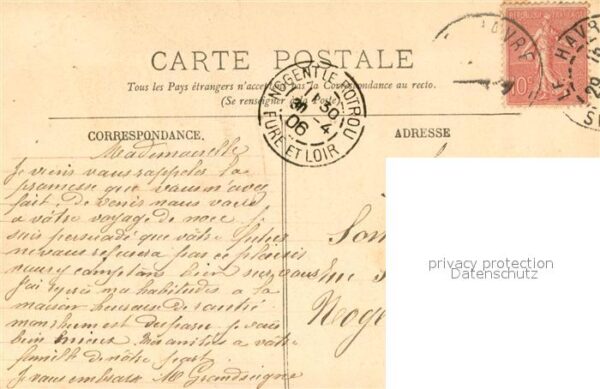 CARTE POSTALE
Tous les Pays étrangers n'acceptent pas la Correspondance au recto.
(Se renseigner à la Poste)
RÉPUBLIQUE FRANÇAISE
10
HAVRE
NOGENT LE ROTROU
30 -4
06
EURE ET LOIR
CORRESPONDANCE.
ADRESSE
Mademoiselle
Je viens vous rappeler la
promesse que vous m'avez
fait. De venir nous voir
a vôtre voyage de noce
suis persuadé que vôtre futur
ne vous refusera pas ce plaisir
nous y comptons bien sur vous
J'ai repris ma habitudes a la
maison heureux de santé
mon rhum est disparu je vais
bien mieux. Mes amitiés a vôtre
famille de nôtre part
Je vous embrasse M Grandseigne
Nog
privacy protection
Datenschutz